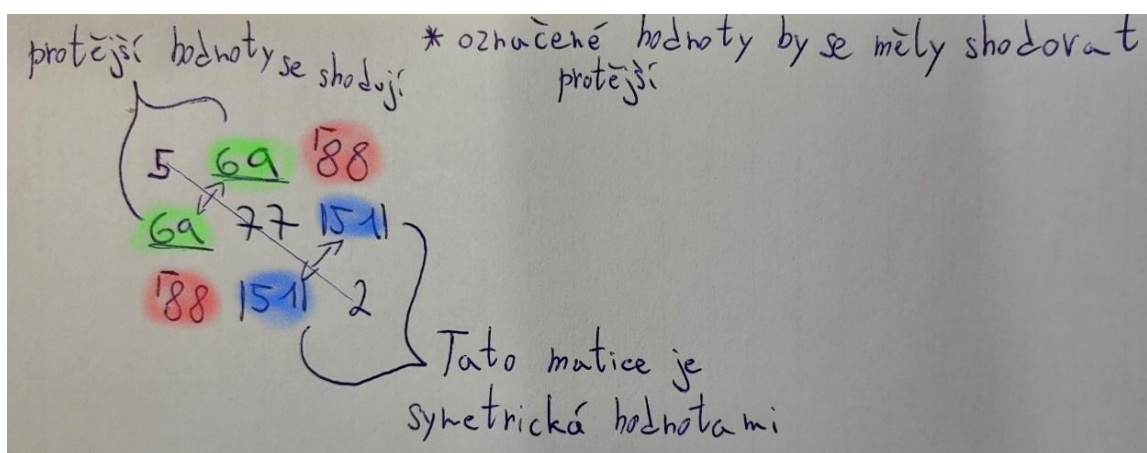 protější hodnoty se shodují
* označené hodnoty by se měly shodovat
protější
5 69 88
69 77 |51|
88 |51| 2
Tato matice je
symetrická hodnotami